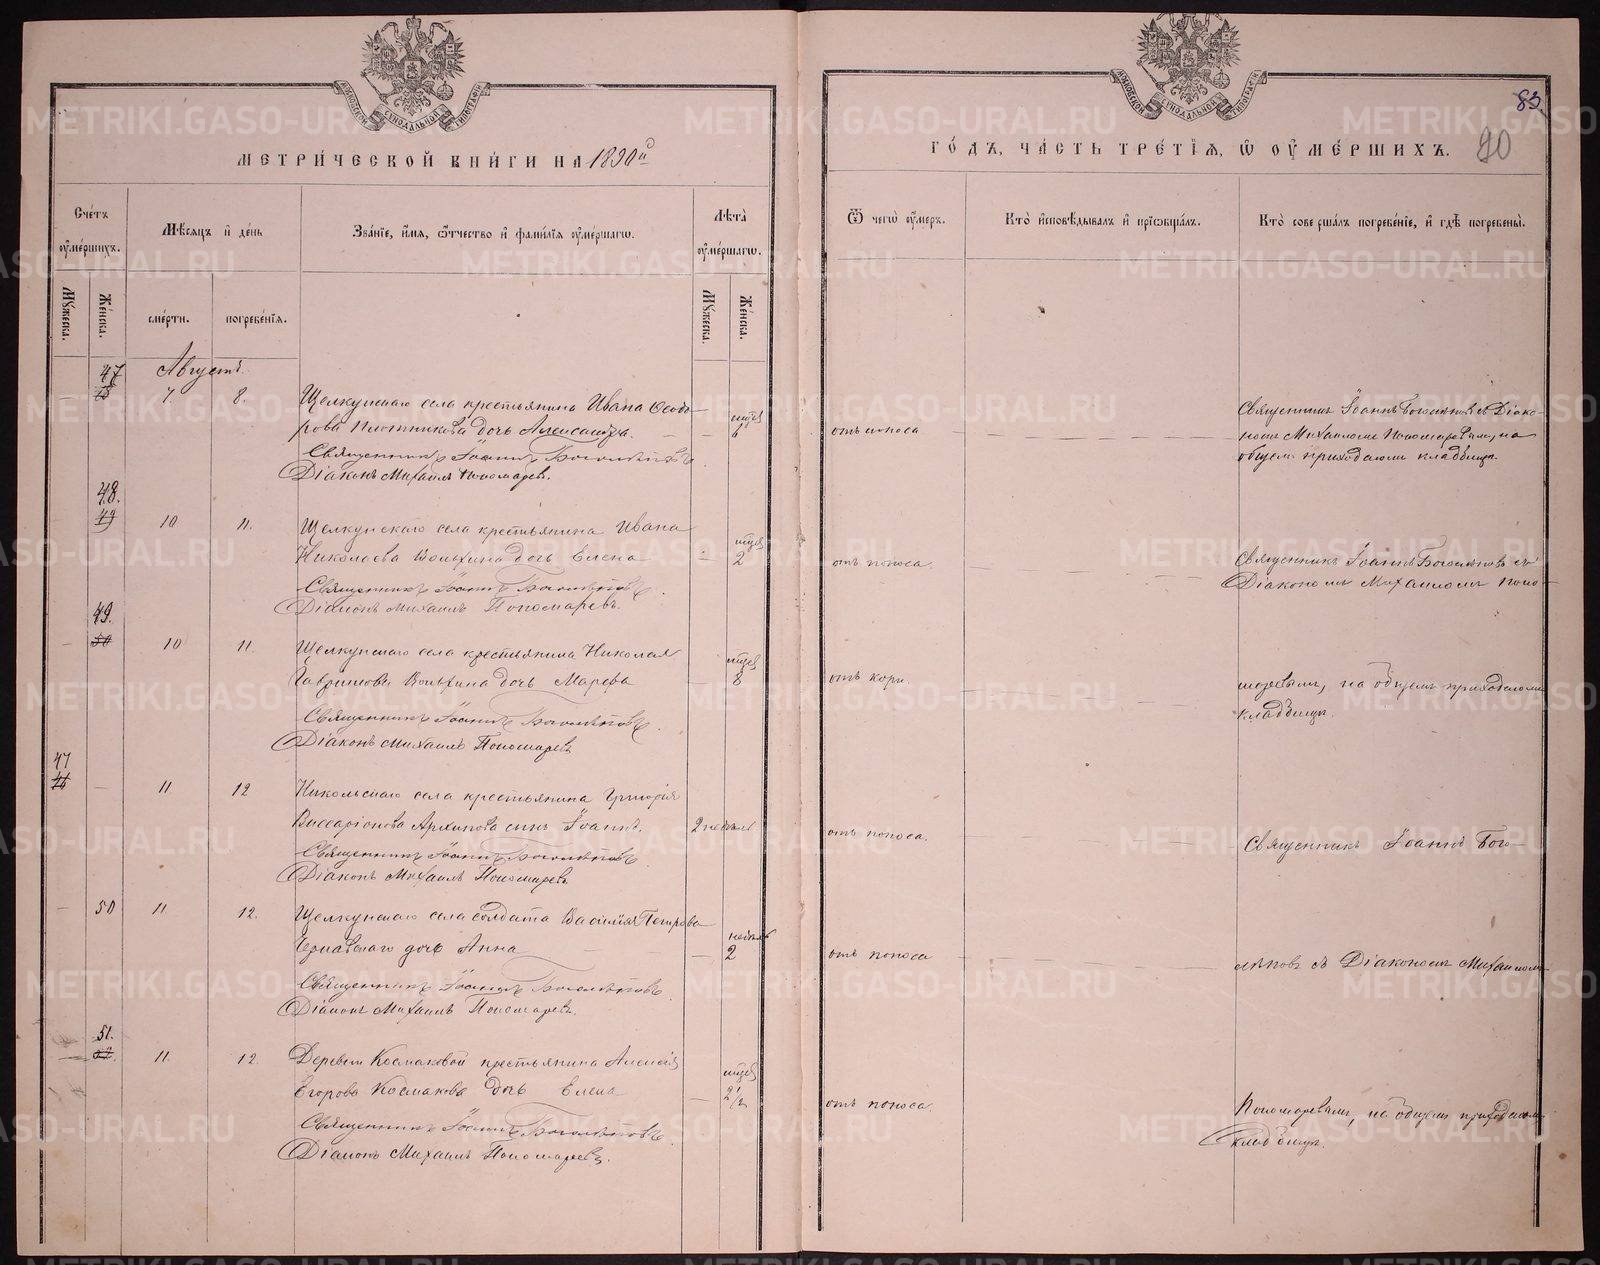 МЕТРИЧЕСКОЙ КНИГИ НА 1890й
ГОДЪ, ЧАСТЬ ТРЕТІЯ, Ѿ ОУМЕРШИХЪ.
83.
90
Счетъ оумершихъ.
Мѣсяцъ и день
Званіе, имя, ѿтчество и фамилія оумершагѡ.
Лѣта оумершагѡ.
Ѿ чегѡ оумеръ.
Кто исповѣдывалъ и пріѡбщалъ.
Кто совершалъ погребеніе, и гдѣ погребены.
Мꙋжеска.
Женска.
смерти.
погребенія.
Мꙋжеска.
Женска.
Августъ.
47
7
8.
Щелкунскаго села крестьянина Ивана Ѳедо-
рова Плотникова дочь Александра.
6
отъ поноса
Священникъ Іоаннъ Боголѣповъ
Діаконъ Михаилъ Пономаревъ.
Священникъ Іоаннъ Боголѣповъ съ Діако-
номъ Михаиломъ Пономаревымъ, на
общемъ приходскомъ кладбищѣ.
48.
49
10
11.
Щелкунскаго села крестьянина Ивана
Николаева дочь Елена
2
отъ поноса.
Священникъ Іоаннъ Боголѣповъ
Діаконъ Михаилъ Пономаревъ.
Священникъ Іоаннъ Боголѣповъ съ
Діакономъ Михаиломъ Поно-
49.
50
10
11.
Щелкунскаго села крестьянина Николая
Гаврилова дочь Марѳа
8
отъ кори.
Священникъ Іоаннъ Боголѣповъ.
Діаконъ Михаилъ Пономаревъ
маревымъ, на общемъ приходскомъ
кладбищѣ.
47
11
12
Никольскаго села крестьянина Григорія
Виссаріонова Архипова сынъ Іоаннъ.
2 недѣль
отъ поноса.
Священникъ Іоаннъ Боголѣповъ
Діаконъ Михаилъ Пономаревъ
Священникъ Іоаннъ Бого-
50
11
12.
Щелкунскаго села солдата Василія Петрова
дочь Анна
недѣль
2
отъ поноса
Священникъ Іоаннъ Боголѣповъ
Діаконъ Михаилъ Пономаревъ.
лѣповъ съ Діакономъ Михаиломъ
51.
11.
12.
Деревни Космаковой крестьянина Алексія
Егорова Космакова дочь Елена
2½
отъ поноса.
Священникъ Іоаннъ Боголѣповъ
Діаконъ Михаилъ Пономаревъ.
Пономаревымъ, на общемъ приходскомъ
кладбищѣ.
METRIKI.GASO-URAL.RU